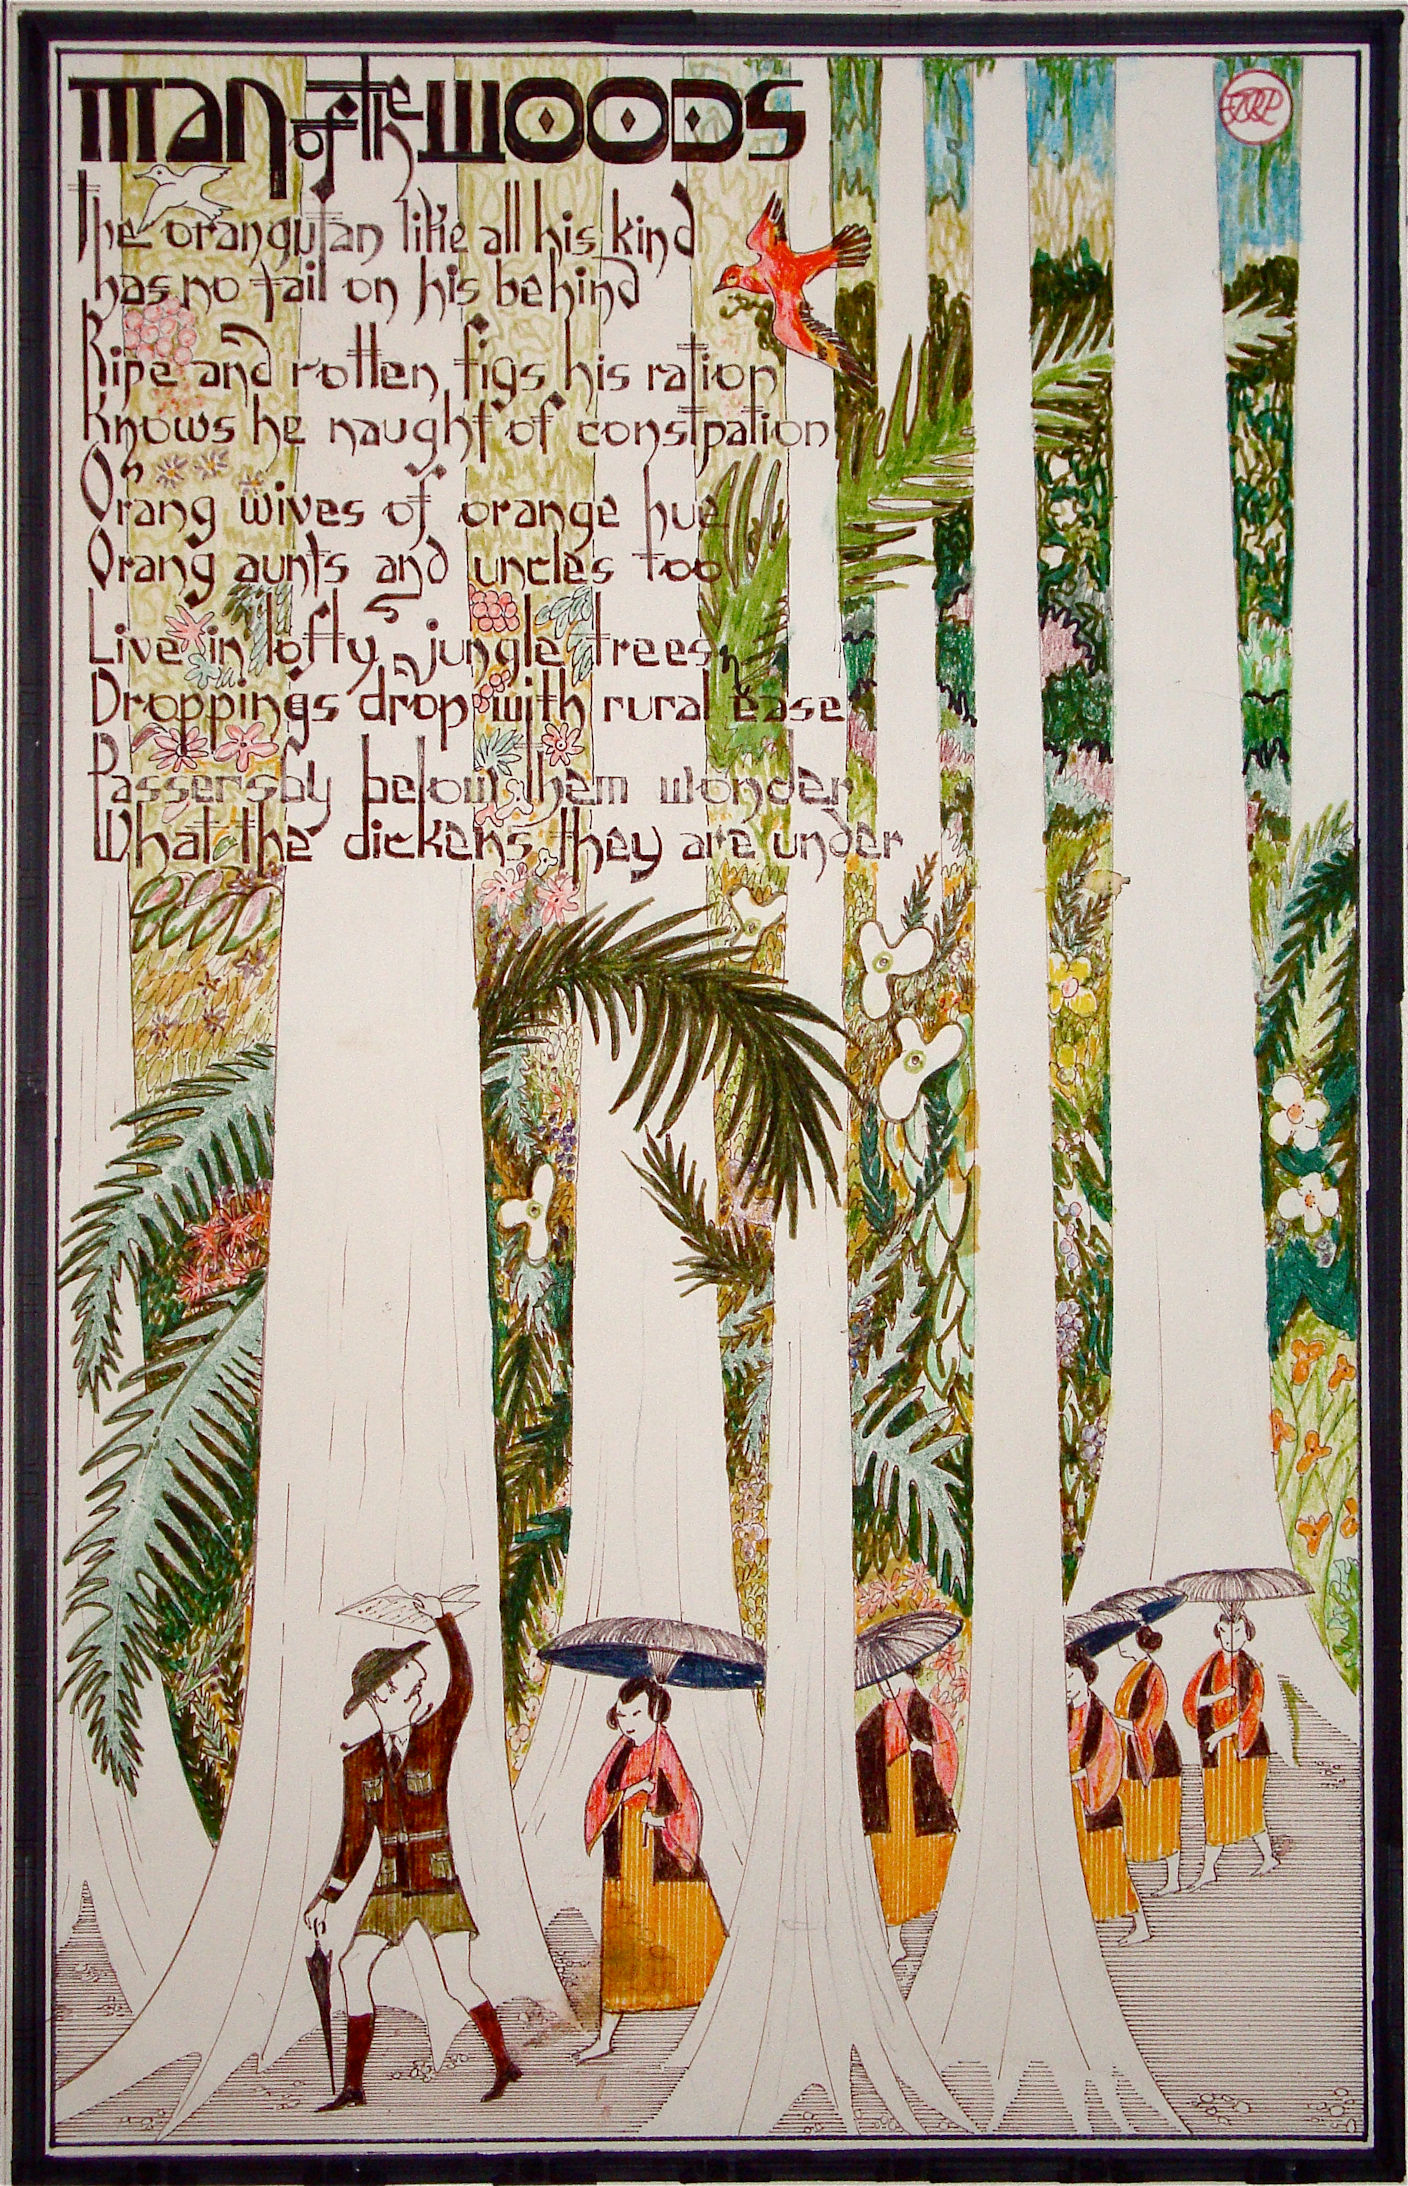 Man of the Woods
The orangutan like all his kind
has no tail on his behind
Ripe and rotten figs his ration
Knows he naught of constpation
Orang wives of orange hue
Orang aunts and uncles too
Live in lofty jungle trees
Droppings drop with rural ease
Passersby below them wonder
What the dickens they are under